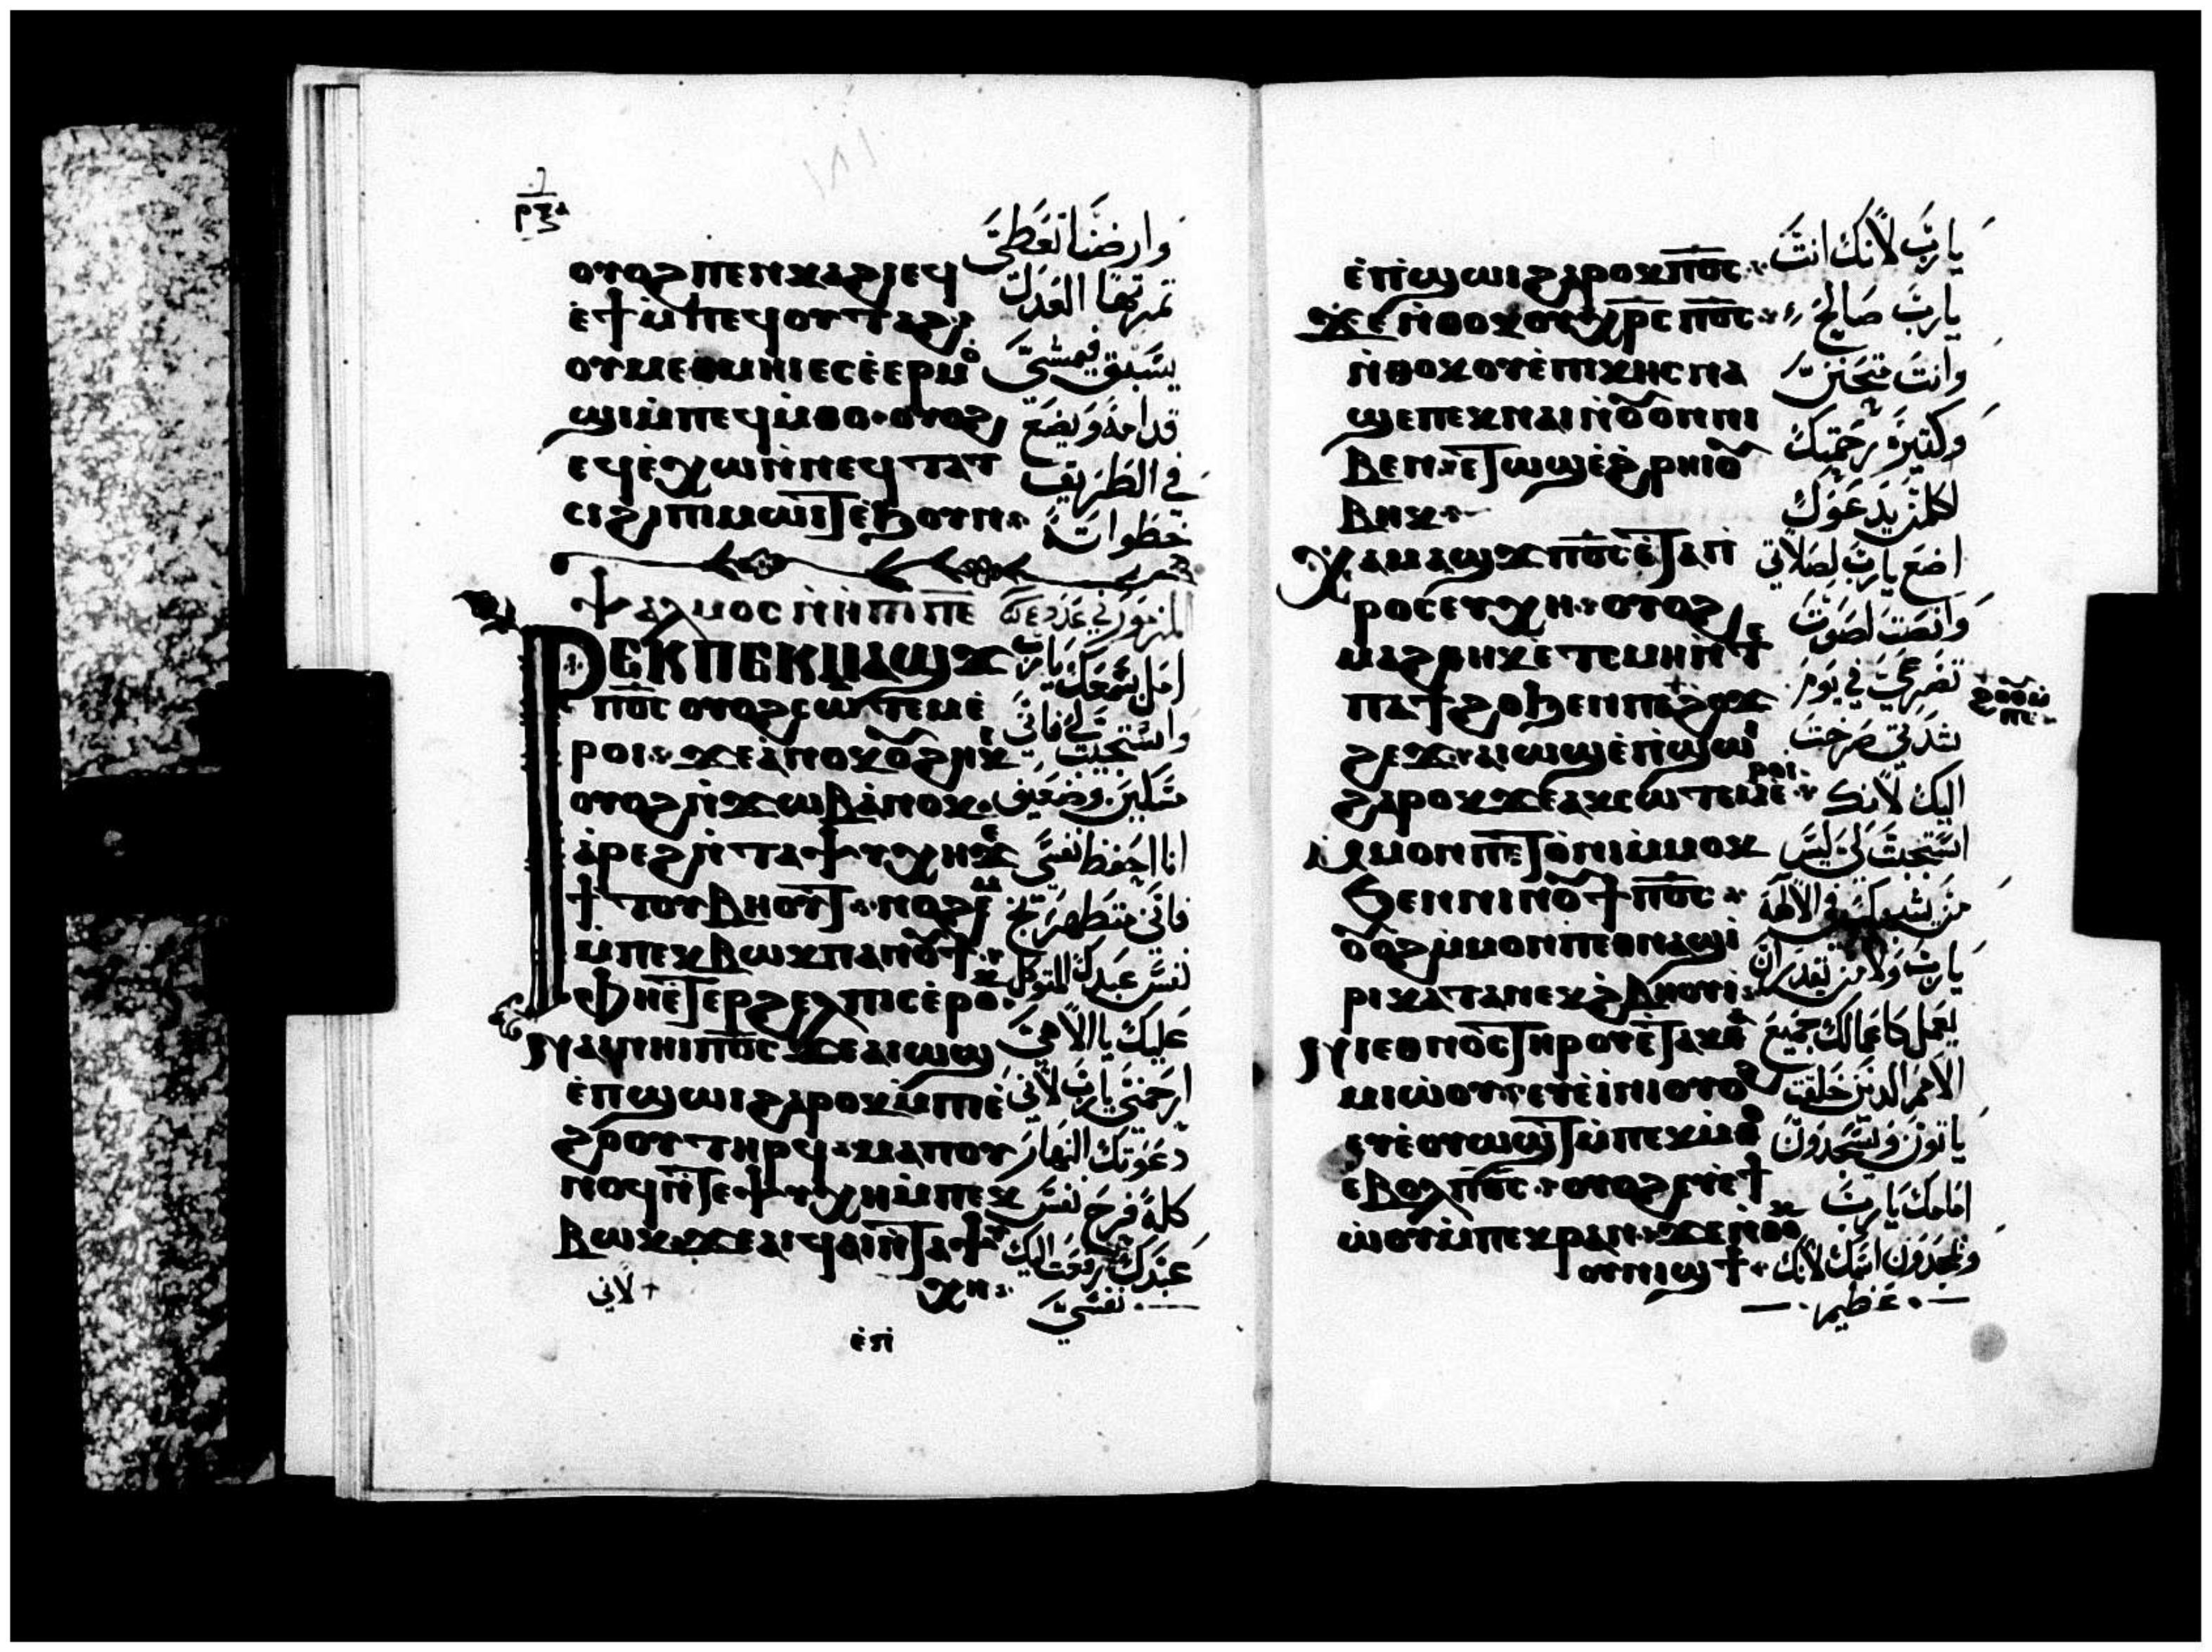 ⲟⲩⲟϩ ⲡⲉⲛⲕⲁϩⲓ ⲉϥ
ⲉ̀ϯ ⲙ̀ⲡⲉϥⲟⲩⲧⲁϩ
ⲟⲩⲙⲉⲑⲙⲏⲓ ⲉⲥⲉ̀ⲉⲣⲙⲟ
ϣⲓ ⲙ̀ⲡⲉϥⲙ̀ⲑⲟ ⲟⲩⲟϩ
ⲉϥⲉ̀ⲭⲱ ⲛ̀ⲛⲉϥⲧⲁⲧ
ⲥⲓ ϩⲓ ⲡⲓⲙⲱⲓⲧ ⲉ̀ϧⲟⲩⲛ
ⲯⲁⲗⲙⲟⲥ
ⲣⲉⲕ ⲡⲉⲕⲙⲁϣϫ
ⲡⲟ̅ⲥ̅ ⲟⲩⲟϩ ⲥⲱⲧⲉⲙ ⲉ̀
ⲣⲟⲓ ϫⲉ ⲁ̀ⲛⲟⲕ ⲟⲩϩⲏⲕⲓ
ⲟⲩⲟϩ ⲛ̀ϫⲱⲃ ⲁ̀ⲛⲟⲕ
ⲁ̀ⲣⲉϩ ⲛ̀ⲧⲁⲯⲩⲭⲏ ϫⲉ
ϯⲧⲟⲩⲃⲏⲟⲩⲧ ⲛⲟϩⲉⲙ
ⲙ̀ⲡⲉⲕⲃⲱⲕ ⲡⲁⲛⲟⲩϯ
ⲫⲏⲉ̀ⲧⲉⲣϩⲉⲗⲡⲓⲥ ⲉ̀ⲣⲟⲕ
ⲛⲁⲓ ⲛⲏⲓ ⲡⲟ̅ⲥ̅ ϫⲉ ⲁⲓⲱϣ
ⲉ̀ⲡϣⲱⲓ ϩⲁⲣⲟⲕ ⲙ̀ⲡⲓⲉ̀
ϩⲟⲟⲩ ⲧⲏⲣϥ ⲙⲁⲡⲟⲩ
ⲛⲟϥ ⲛ̀ⲧⲉⲯⲩⲭⲏ ⲙ̀ⲡⲉⲕ
ⲃⲱⲕ ϫⲉ ⲁⲓϥⲁⲓ ⲛ̀ⲧⲁⲯⲩ
ⲭⲏ
وارضنا تعطى
تمرتها العدل
يسبق فيمشي
قدامه ويضع
في الطريق
خطواته
امل سمعك يارب
واستجيب لي فاني
مسكين وضعيف
انا احفظ نفسي
فاني متطهر نج
نفس عبدك المتوكل
عليك يا الاهي
ارحمني يارب لاني
دعوتك النهار
كله فرح نفس
عبدك رفعت اليك
نفسي
لاني
ⲉ̀ⲡϣⲱⲓ ϩⲁⲣⲟⲕ ⲡⲟ̅ⲥ̅
ϫⲉ ⲛ̀ⲑⲟⲕ ⲟⲩⲭⲣ̅ⲥ ⲡⲟ̅ⲥ̅
ⲛ̀ⲑⲟⲕ ⲟⲩⲉ̀ⲡⲓⲕⲏⲥ ⲛⲁ
ϣⲉ ⲡⲉⲕⲛⲁⲓ ⲛ̀ⲟⲩⲟⲛ ⲛⲓ
ⲃⲉⲛ ⲉⲧⲱϣ ⲉ̀ϩⲣⲏⲓ ⲟⲩ
ⲃⲏⲕ
ϭⲁⲙⲁϣϫ ⲡⲟ̅ⲥ̅ ⲉ̀ⲧⲁⲡ̀
ⲣⲟⲥⲉⲩⲭⲏ ⲟⲩⲟϩ
ⲙⲁϩⲑⲏⲕ ⲉ̀ⲧⲥⲙⲏ ⲛ̀ⲧⲉ
ⲡⲁϯϩⲟ ϧⲉⲛ ⲡⲉϩⲟⲟⲩ ⲙ̀ⲡⲁ
ϩⲉϫ ⲁⲓⲱϣ ⲉ̀ⲡϣⲱⲓ
ϩⲁⲣⲟⲕ ϫⲉ ⲁⲕⲥⲱⲧⲉⲙ ⲉ̀ⲣⲟⲓ
ⲙ̀ⲙⲟⲛ ⲡⲉⲧⲟ̀ⲛⲓ ⲙ̀ⲙⲟⲕ
ϧⲉⲛ ⲛⲓⲛⲟⲩϯ ⲡⲟ̅ⲥ̅
ⲟⲩⲟϩ ⲙ̀ⲙⲟⲛ ⲡⲉⲑⲛⲁϣⲓ
ⲣⲓ ⲕⲁⲧⲁ ⲛⲉⲕϩⲃⲏⲟⲩⲓ
ⲛⲓⲉⲑⲛⲟⲥ ⲧⲏⲣⲟⲩ ⲉ̀ⲧⲁⲕⲑⲁ
ⲙⲓⲱⲟⲩ ⲉⲩⲉ̀ⲓ̀ ⲛⲓ ⲟⲩⲟϩ
ⲉⲩⲉ̀ⲟⲩⲱϣⲧ ⲙ̀ⲡⲉⲕⲙ̀ⲑⲟ
ⲉ̀ⲃⲟⲗ ⲡⲟ̅ⲥ̅ ⲟⲩⲟϩ ⲉⲩⲉ̀ϯ
ⲱ̀ⲟⲩ ⲙ̀ⲡⲉⲕⲣⲁⲛ ϫⲉ ⲛ̀ⲑⲟⲕ
ⲟⲩⲛⲓϣϯ
يارب لانك انت
يارب صالح
وانت متحنن
وكتيرة رحمتك
لكل من يدعوك
اضع يارب لصلاتي
وانصت لصوت
تضرعي في يوم
شدتي صرخت
اليك لانك
استجبت لي ليس
من يشبهك في الالهة
يارب ولا من يقدر ان
يعمل كاعمالك جميع
الامم الذين خلقت
ياتون ويسجدون
امامك يارب
ويمجدون اسمك لانك
عظيم